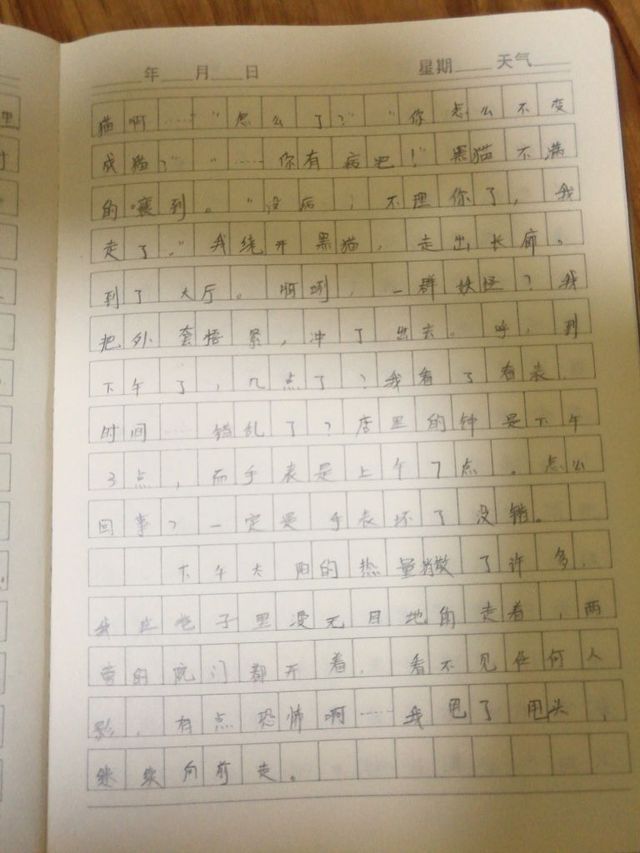 年 月 日 星期 天气
猫啊……“怎么了？”“你怎么不变
成猫？”“……你有病吧！”黑猫不满
的嚷到。“没后，不理你了，我
走了。”我绕开黑猫，走出长廊。
到了大厅。啊咧，一群妖怪？我
把外套捂紧，冲了出去。呼，到
下午了，几点了？我看了看表，
时间……错乱了？店里的钟是下午
3点，而手表是上午7点。怎么
回事？一定是手表坏了没错。
下午太阳的热量散了许多，
我在巷子里漫无目地的走着，两
旁的院门都开着，看不见任何人
影，有点恐怖啊……我甩了甩头，
继续向前走。